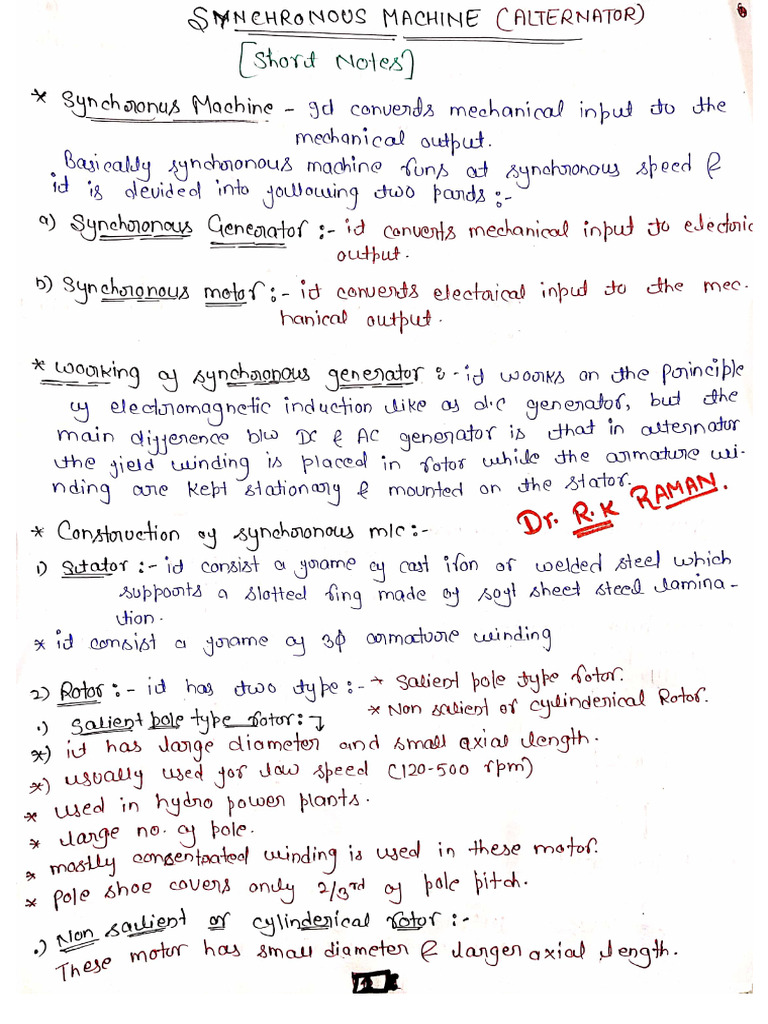 SYNCHRONOUS MACHINE (ALTERNATOR)
[Short Notes]
* Synchronus Machine - It converts mechanical input to the
mechanical output.
Basically synchronous machine runs at synchronous speed &
it is devided into following two parts :-
a) Synchronous Generator :- it converts mechanical input to electric
output.
b) Synchronous motor :- it converts electrical input to the mec-
hanical output.
* Working of synchronous generator :- it works on the principle
of electromagnetic induction like as d.c generator, but the
main difference b/w DC & AC generator is that in alternator
the field winding is placed in rotor while the armature wi-
nding are kept stationary & mounted on the stator.
Dr. R.K RAMAN.
* Construction of synchronous m/c :-
1) Stator :- it consist a frame of cast iron or welded steel which
supports a slotted ring made of soft sheet steel lamina-
tion.
* it consist a frame of 3φ armature winding
2) Rotor :- it has two type :- * Salient pole type rotor.
* Non salient or cylinderical Rotor.
.) Salient pole type rotor :-
*) it has large diameter and small axial length.
*) usually used for low speed (120-500 rpm)
* used in hydro power plants.
* large no. of pole.
* mostly consentrated winding is used in these motor.
* Pole shoe covers only 2/3rd of pole pitch.
.) Non salient or cylinderical rotor :-
These motor has small diameter & larger axial length.